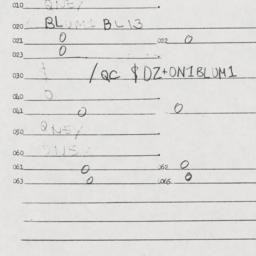 010 ONEY
020 BLUM1 BL13
021 0 022 0
023 0
030 /QC $DZ+ON1BLUM1
040 0
041 0 0
050 ONEY
060 ONEY
061 0 062 0
063 0 065 0